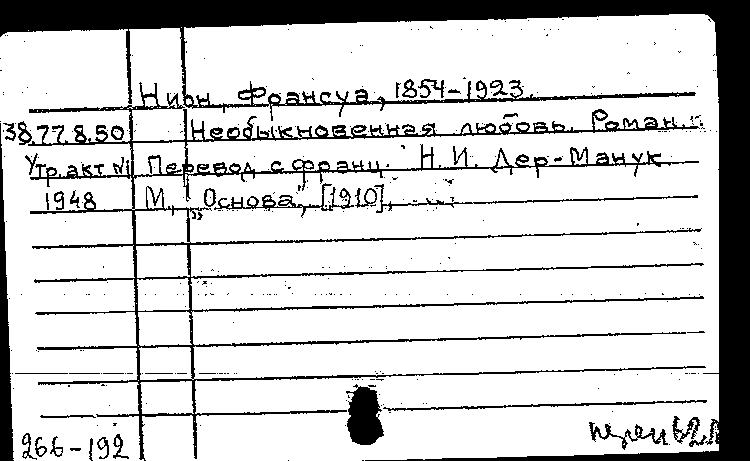 Нион, Франсуа, 1854-1923.
38.77.8.50 Необыкновенная любовь. Роман.
Утр. акт №1 Перевод с франц. Н. И. Дер-Манук.
1948 М., „Основа", [1910],
266-192